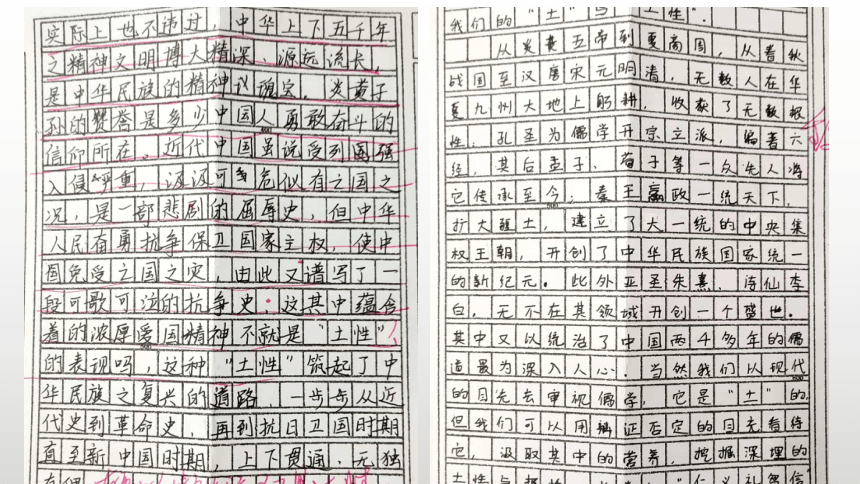 实际上也不违过，中华上下五千年
之精神文明博大精深、源远流长，
是中华民族的精神瑰宝，炎黄子
孙的赞誉是多少中国人勇敢奋斗的
信仰所在。近代中国虽说受到列强
入侵严重，汲汲可危似有亡国之
况，是一部悲剧的屈辱史，但中华
人民奋勇抗争保卫国家主权，使中
国免受亡国之灾，由此又谱写了一
段可歌可泣的抗争史；这其中蕴含
着的浓厚爱国精神不就是“土性”
的表现吗，这种“土性”筑起了中
华民族之复兴的道路，一步步从近
代史到革命史，再到抗日卫国时期
直至新中国时期，上下贯通，无独
有偶
我们的“土”与“土性”。
从炎黄五帝到夏商周，从春秋
战国至汉唐宋元明清，无数人在华
夏九州大地上躬耕，收获了无数
性；孔圣为儒学开宗立派，编著六
经，其后孟子、荀子等一众先人将
它传承至今；秦王嬴政一统天下，
扩大疆土，建立了大一统的中央集
权王朝，开创了中华民族国家统一
的新纪元。此外亚圣朱熹，诗仙李
白，无不在其领域开创一个盛世。
其中又以统治了中国两千多年的儒
道最为深入人心。当然我们以现代
的目光去审视儒学，它是“土”的
但我们可以用辩证否定的目光看待
它，汲取其中的营养，挖掘深埋的
土性